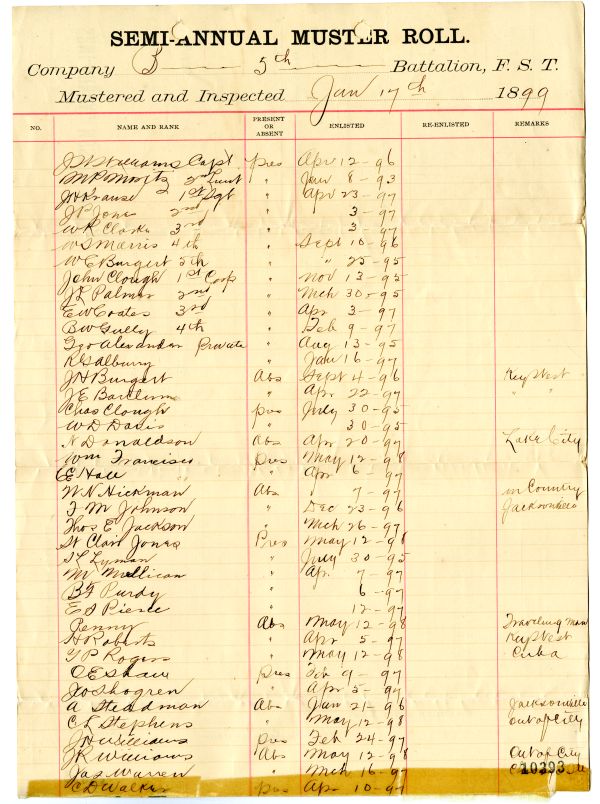 SEMI-ANNUAL MUSTER ROLL.
Company B 5th Battalion, F. S. T.
Mustered and Inspected Jan 17th 1899
NO. NAME AND RANK PRESENT OR ABSENT ENLISTED RE-ENLISTED REMARKS
J W Williams Capt pres Apr 12-96
2nd Lieut " Jan 8-93
J H Krause 1st Sgt " Apr 23-97
J P Jones 2nd " 3-97
W R Clark 3rd " 3-97
W S Morris 4th " Sept 10-96
W E Burgert 5th " " 25-95
John Clough 1st Corp " Nov 13-95
J L Palmer 2nd " Mch 30-95
E W Coates 3rd " Apr 3-97
B W Gully 4th " Feb 9-97
Geo Alexander Private " Aug 13-95
R Galburry " Jan 16-97
J H Burgert Abs Sept 4-96 Key West
J E " Apr 22-97 " "
Chas Clough pres July 30-95
W D Davis " 30-95
N Donaldson Abs Apr 20-97 Lake City
Wm Francisco pres May 12-98
E Hall " Apr 6-97
W N Hickman Abs " 7-97 in Country
J M Johnson " Dec 23-96 Jacksonville
Thos E Jackson " Mch 26-97
St Clair Jones Pres May 12-98
S L Lyman " July 30-95
M Mellican " Apr 7-97
B F Purdy " 6-97
E S Pierce " 12-97
Penny Abs May 12-98 Traveling man
H Roberts " Apr 5-97 Key West
T P Rogers " May 12-98 Cuba
O E Shaw pres Feb 9-97
Jno Shogren " Apr 5-97
A Steadman Abs Jan 21-96 Jacksonville
C L Stephens " May 12-98 out of City
J H Williams pres Feb 24-97
J R Williams Abs May 12-98 Out of City
Jas Warren " Mch 16-97
C D Walker pres Apr 10-97
10393